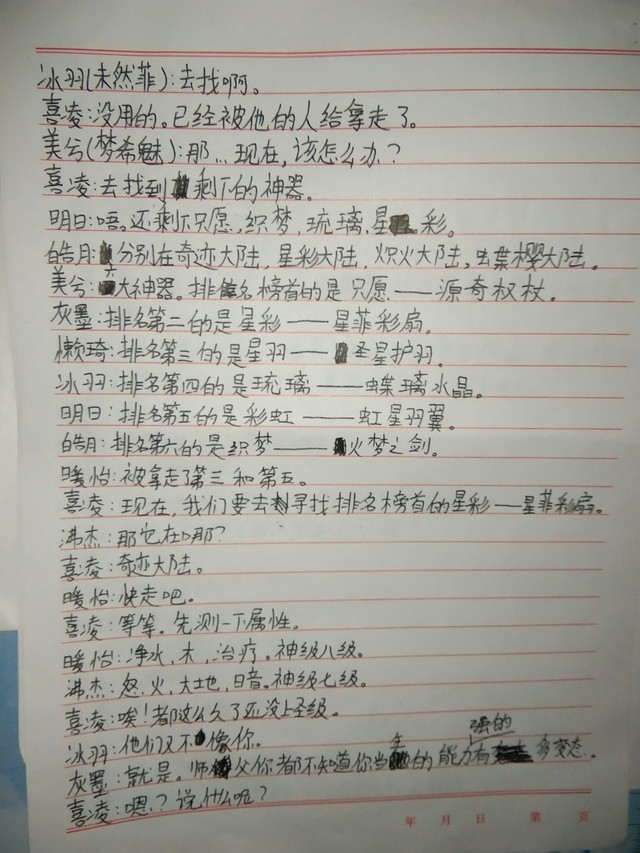 冰羽(未然菲):去找啊。
喜凌:没用的。已经被他的人给拿走了。
美兮(梦希魅):那...现在,该怎么办?
喜凌:去找到剩下的神器。
明日:唔。还剩下只愿,织梦,琉璃,星彩。
皓月:分别在奇迹大陆,星彩大陆,炽火大陆,虫葉樱大陆。
美兮:六大神器。排名榜首的是只愿——源奇权杖。
灰墨:排名第二的是星彩——星菲彩扇。
懒琦:排名第三的是星羽——圣星护羽。
冰羽:排名第四的是琉璃——蝶璃水晶。
明日:排名第五的是彩虹——虹星羽翼。
皓月:排名第六的是织梦——火梦之剑。
暖怡:被拿走了第三和第五。
喜凌:现在,我们要去寻找排名榜首的星彩——星菲彩扇。
沸杰:那它在哪?
喜凌:奇迹大陆。
暖怡:快走吧。
喜凌:等等。先测一下属性。
暖怡:净水,木,治疗。神级八级。
沸杰:怒,火,大地,日音。神级七级。
喜凌:唉!都这么久了还没上圣级。
冰羽:他们又不像你。
灰墨:就是。师父你都不知道你当年的能力有多变态。
强的
喜凌:嗯?说什么呢?
年 月 日 第 页